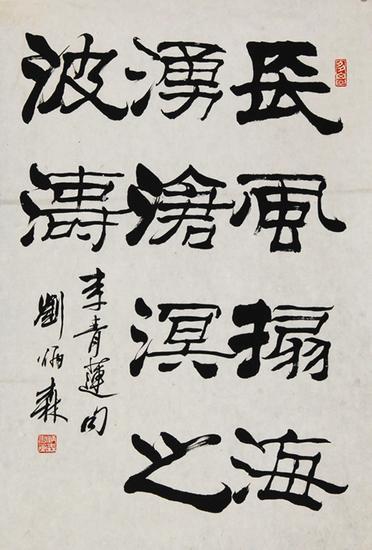 長風搨海
湧滄溟之
波濤
李青蓮句
劉炳森